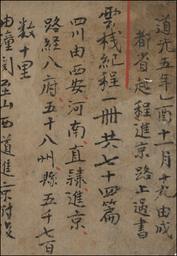 道光五年乙酉十一月十九由成
都省起程進京路上過書
雲棧紀程一冊共七十四篇
四川由西安河南直隸進京
路經八府五十八州縣五千七百
數十里
由潼関至山西道進京